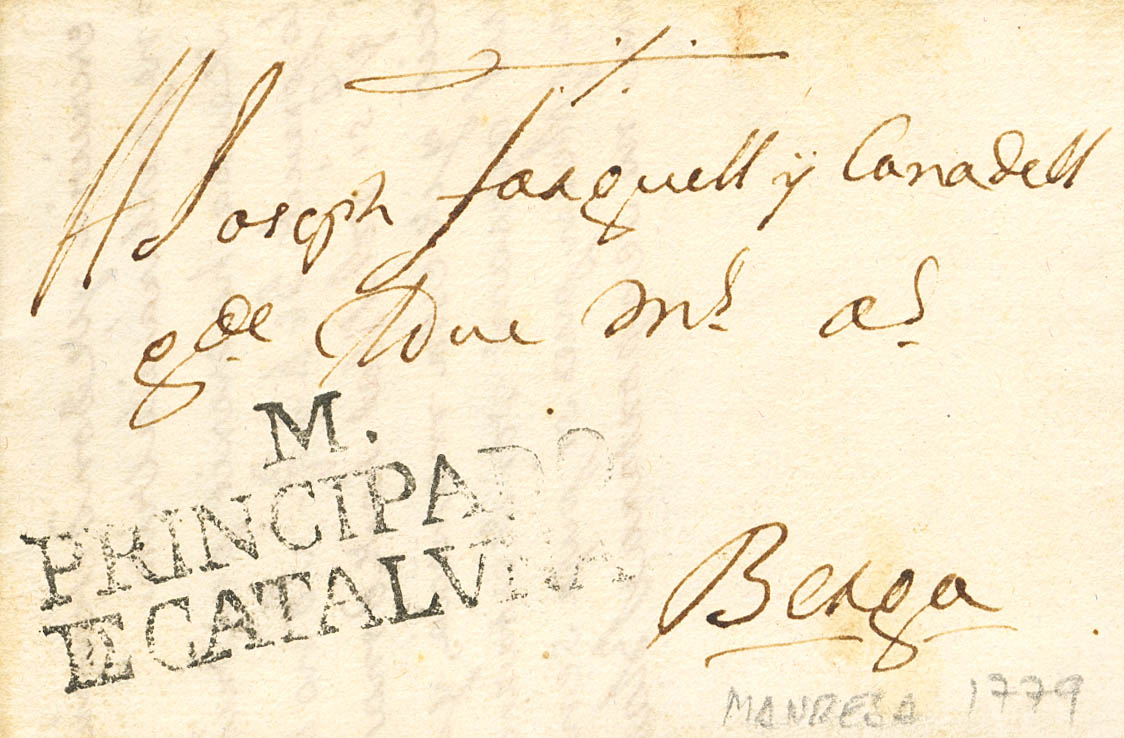 A Joseph Farguell y Canadell
gde Due ms as
M.
PRINCIPADO
DE CATALVÑA
Berga
MANRESA 1779